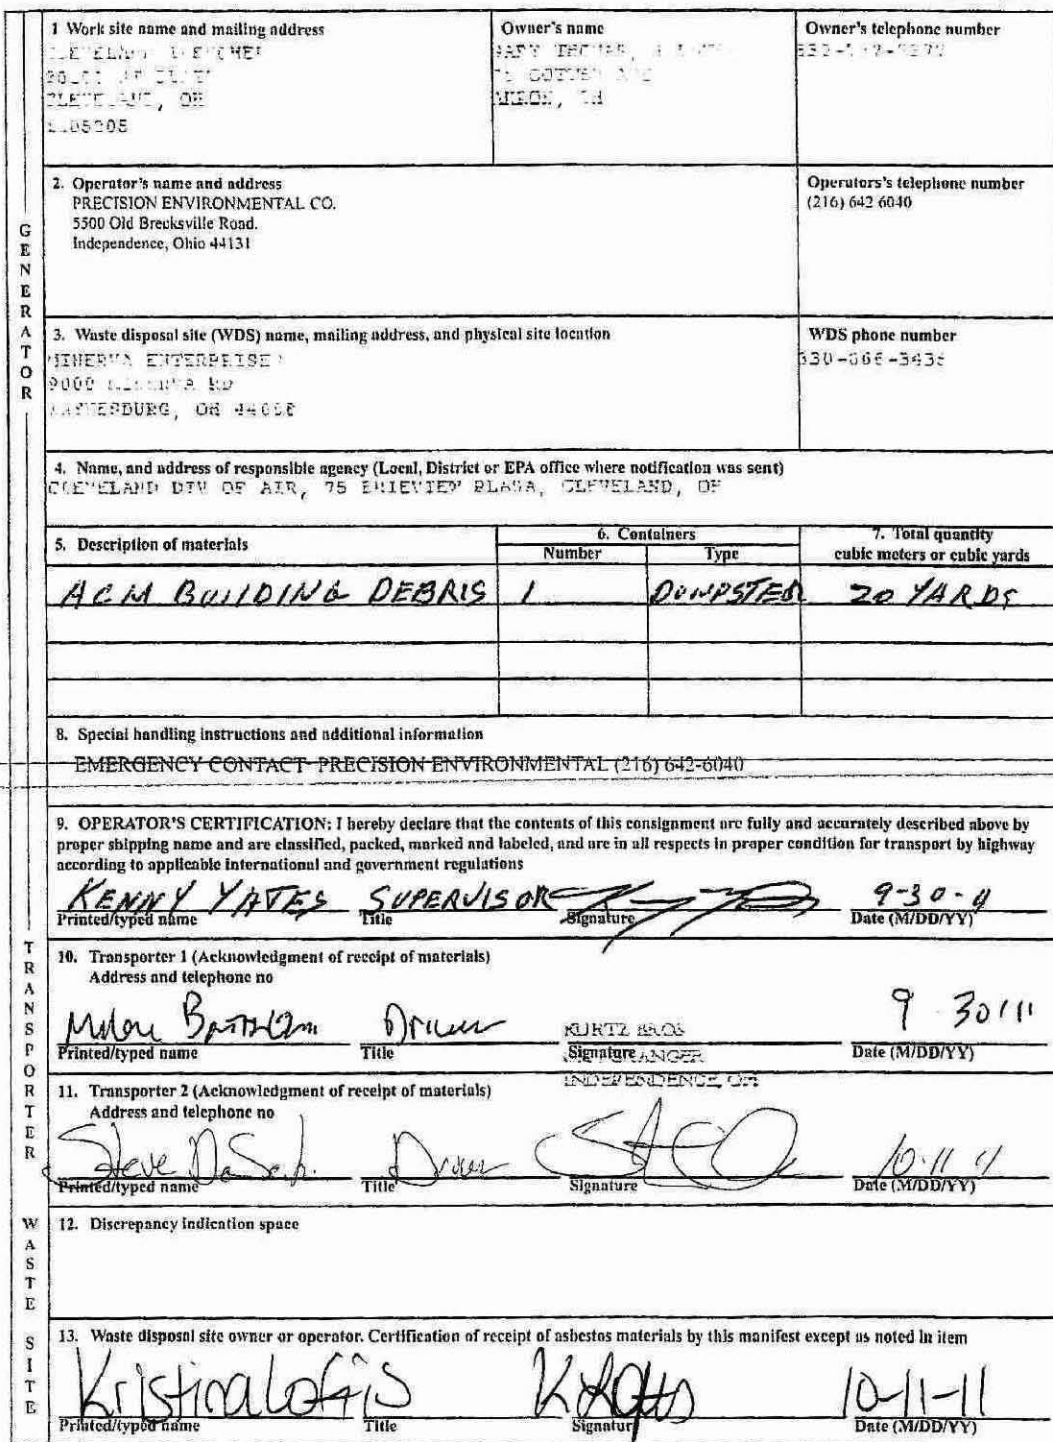 1 Work site name and mailing address
Owner's name
Owner's telephone number
CLEVELAND, OH
OH
2. Operator's name and address
PRECISION ENVIRONMENTAL CO.
5500 Old Brecksville Road.
Independence, Ohio 44131
Operators's telephone number
(216) 642 6040
GENERATOR
3. Waste disposal site (WDS) name, mailing address, and physical site location
MINERVA ENTERPRISE
9000 MINERVA RD
OH
WDS phone number
4. Name, and address of responsible agency (Local, District or EPA office where notification was sent)
CLEVELAND DIV OF AIR, 75 ERIEVIEW PLASA, CLEVELAND, OH
5. Description of materials
6. Containers
Number
Type
7. Total quantity
cubic meters or cubic yards
ACM BUILDING DEBRIS 1 DUMPSTER 20 YARDS
8. Special handling instructions and additional information
EMERGENCY CONTACT PRECISION ENVIRONMENTAL (216) 642-6040
9. OPERATOR'S CERTIFICATION: I hereby declare that the contents of this consignment are fully and accurately described above by
proper shipping name and are classified, packed, marked and labeled, and are in all respects in proper condition for transport by highway
according to applicable international and government regulations
KENNY YATES SUPERVISOR 9-30-11
Printed/typed name Title Signature Date (M/DD/YY)
TRANSPORTER
10. Transporter 1 (Acknowledgment of receipt of materials)
Address and telephone no
Driver KURTZ BROS 9 30/11
Printed/typed name Title Signature GRANGER Date (M/DD/YY)
INDEPENDENCE, OH
11. Transporter 2 (Acknowledgment of receipt of materials)
Address and telephone no
Steve Driver 10-11 11
Printed/typed name Title Signature Date (M/DD/YY)
WASTE SITE
12. Discrepancy indication space
13. Waste disposal site owner or operator. Certification of receipt of asbestos materials by this manifest except as noted in item
Kristina Loftis 10-11-11
Printed/typed name Title Signature Date (M/DD/YY)